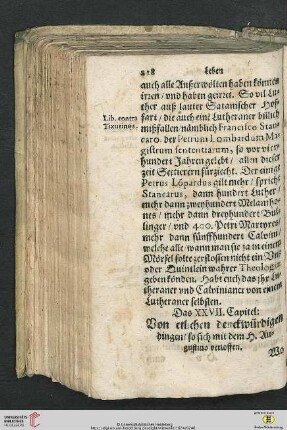 218 Leben
auch alle Außerwölten haben können
irren / und haben geirret. So vil Lu-
ther auß lauter Satanischer Hof-
fart / die auch eine Lutheraner billich
Lib. contra
Tigurinos.
mißfallen nämblich Francisco Stan-
caro, der Petrum Lombardum Ma-
gistrum sententiarum, so vor vier-
hundert Jahren gelebt / allen diser
zeit Sectierern fürzieht. Der einige
Petrus Lõpardus gilt mehr / spricht
Stancarus, dann hundert Luther /
mehr dann zweyhundert Melanthо-
nes / mehr dann dreyhundert Bul-
linger / und 400. Petri Martyres /
mehr dann fünffhundert Calvini /
welche alle / wann man sie ja in einem
Mörsel solte zerstossen nicht ein Untz
oder Quintlein wahrer Theologiæ
geben könden. Habt euch das ihr Lu-
theraner und Calvinianer von einem
Lutheraner selbsten.
Das XXVII. Capitel:
Von etlichen denckwürdigen
dingen / so sich mit dem H. Au-
gustino verloffen.
Wo